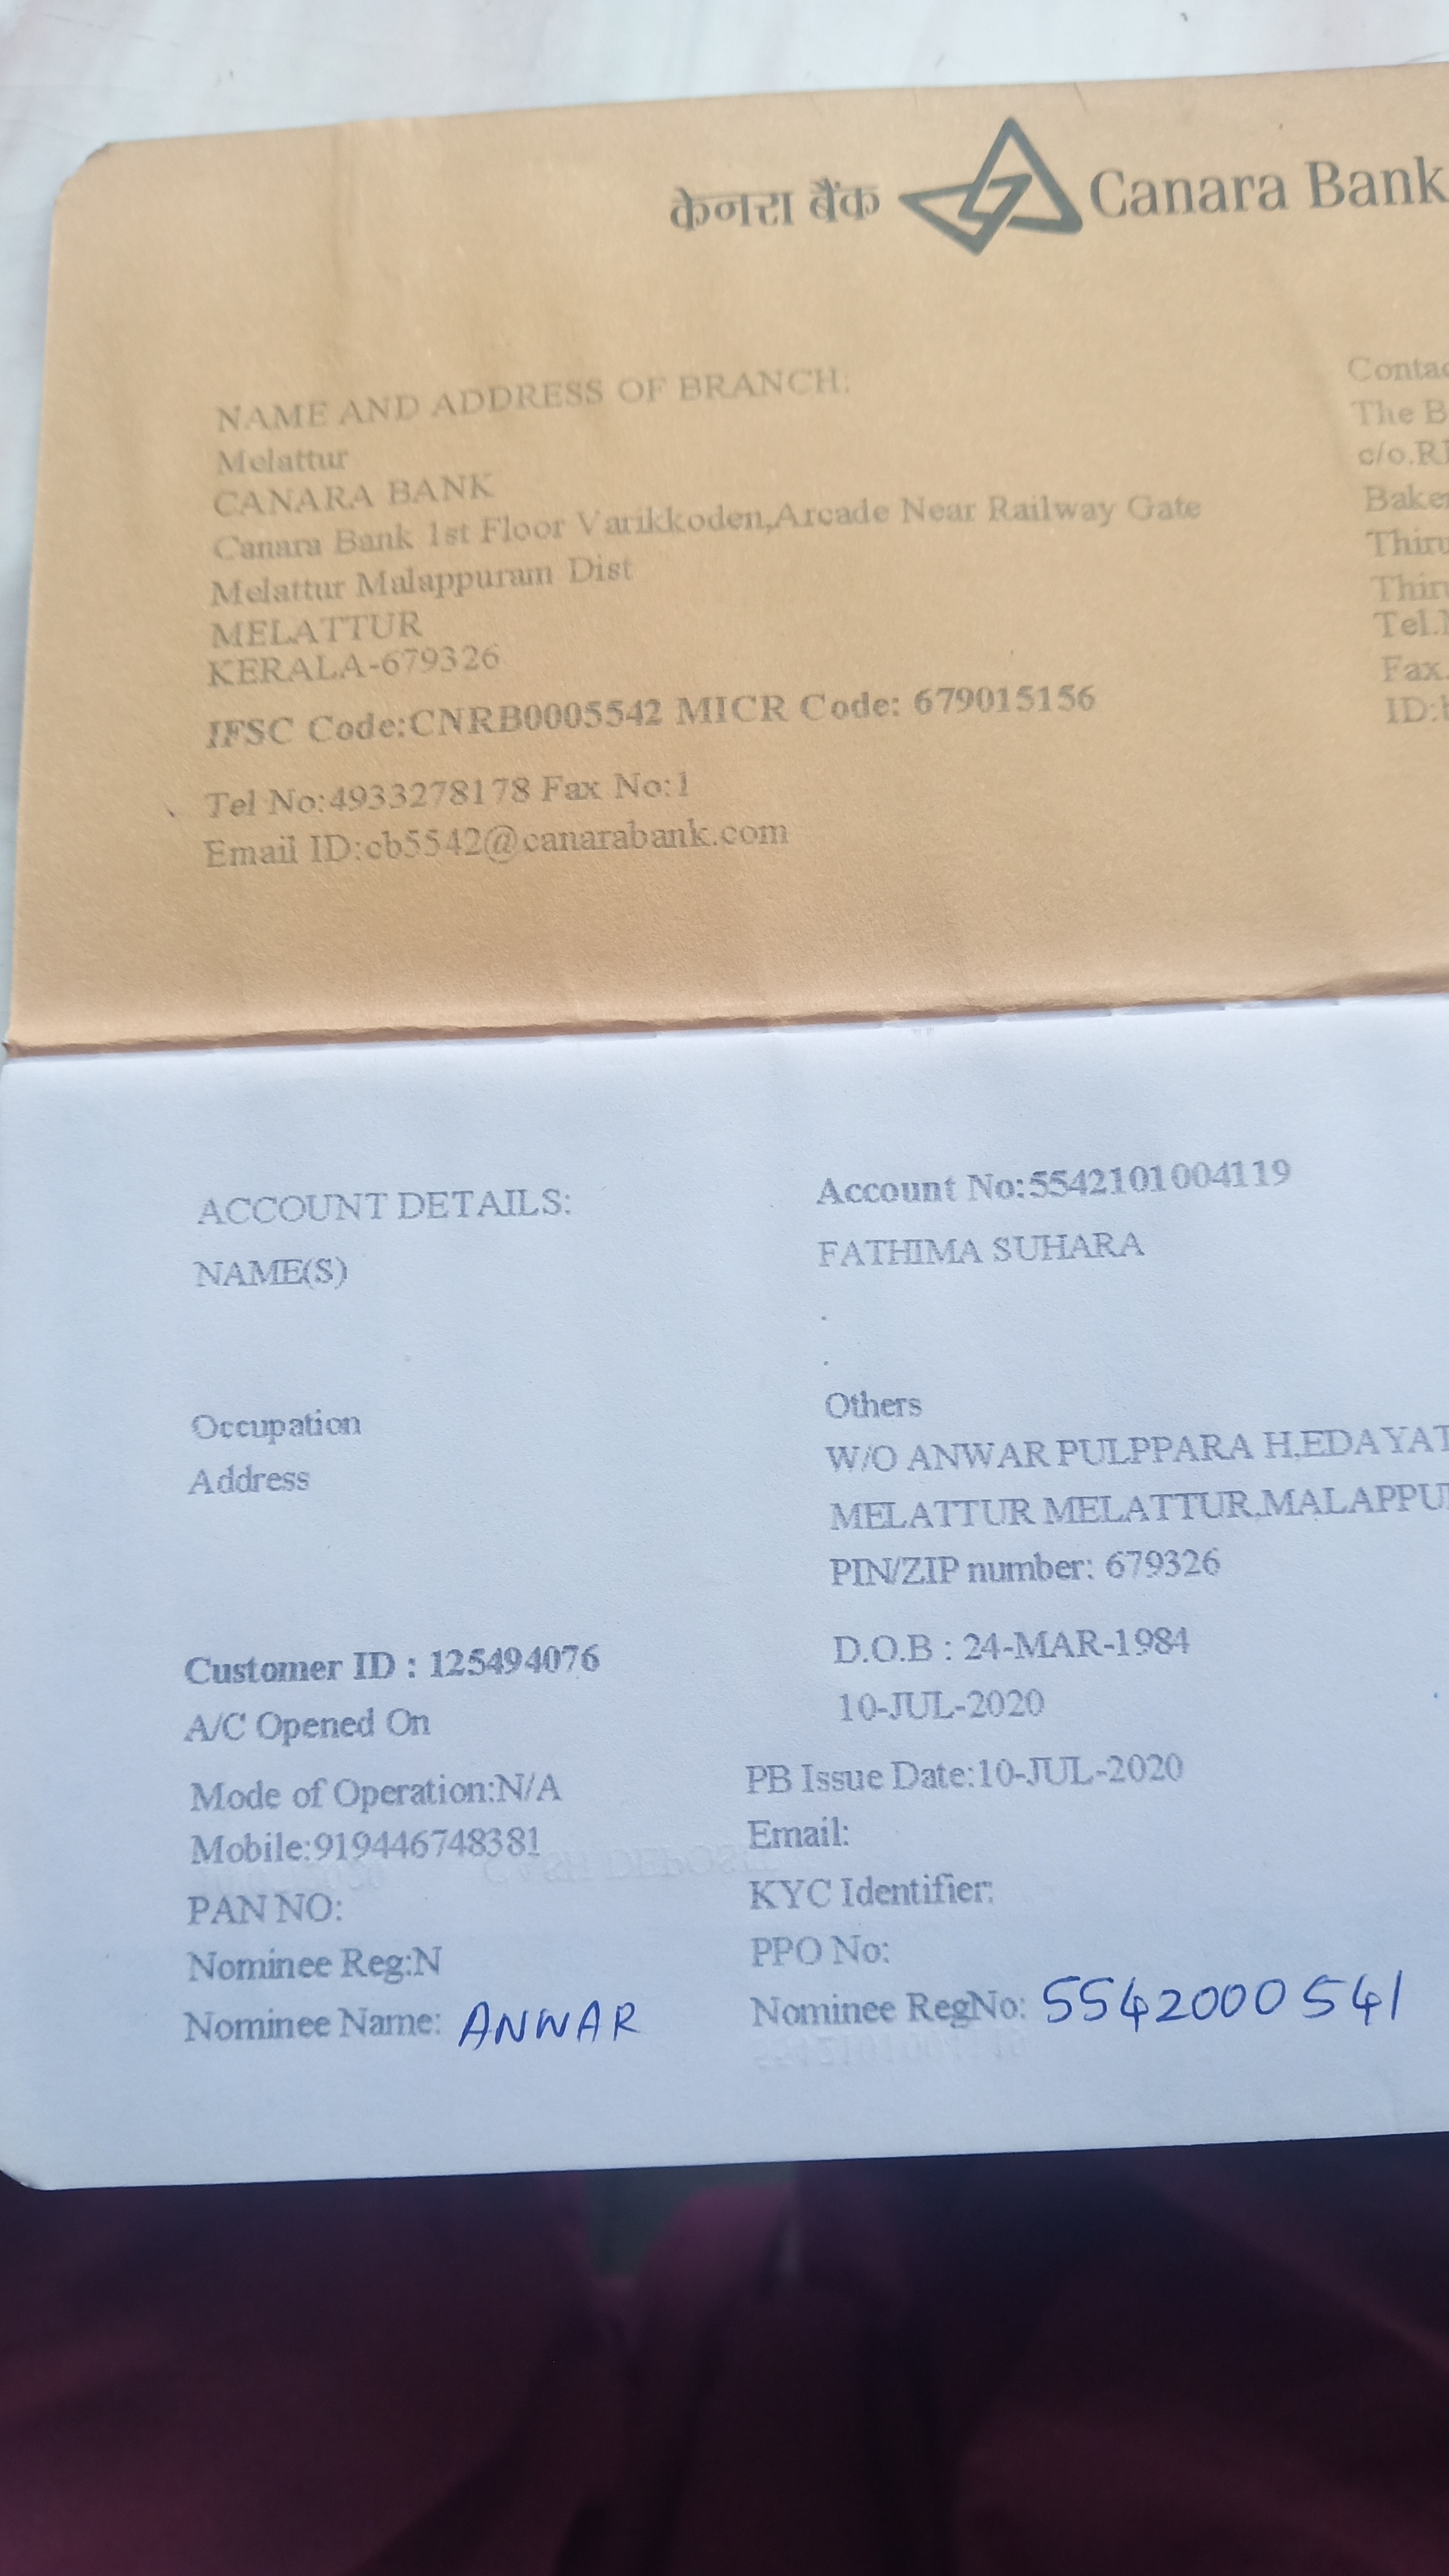 केनरा बैंक Canara Bank
NAME AND ADDRESS OF BRANCH:
Melattur
CANARA BANK
Canara Bank 1st Floor Varikkoden,Arcade Near Railway Gate
Melattur Malappuram Dist
MELATTUR
KERALA-679326
IFSC Code:CNRB0005542 MICR Code: 679015156
Tel No:4933278178 Fax No:1
Email ID:cb5542@canarabank.com
The B
c/o.
Tel.
Fax.
ID:
ACCOUNT DETAILS: Account No:5542101004119
NAME(S) FATHIMA SUHARA
.
.
Occupation Others
Address W/O ANWAR PULPPARA H,EDAYAT
MELATTUR MELATTUR,MALAPPU
PIN/ZIP number: 679326
Customer ID : 125494076 D.O.B : 24-MAR-1984
A/C Opened On 10-JUL-2020
Mode of Operation:N/A PB Issue Date:10-JUL-2020
Mobile:919446748381 Email:
PAN NO: KYC Identifier:
Nominee Reg:N PPO No:
Nominee Name: ANWAR Nominee RegNo: 5542000541